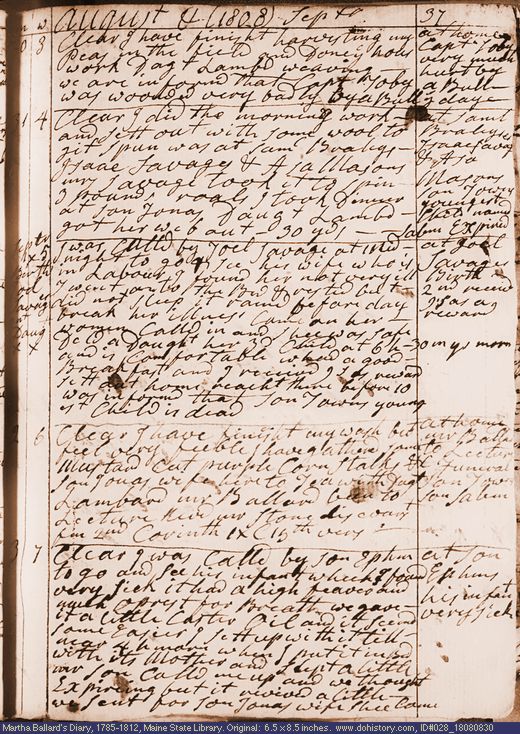 August & (1808) Septr 37
3 Clear I have finisht harvesting my at home
Beas in the field and Doneg hous Capt Soby
work Dagt Lambd weaving very much
we are inform'd that Capt Soby hurt by
was wound'd very bad by by a Bull a Bull
1 4 Clear I did the morning work
and sett out with some wool to at Saml
git spun was at Saml Bralys
Isaac Savages & Asa Masons Isaac Savag
mrs Savage took it to spin & Asa
3 pound I took Dinner Masons
at son Jonas Daugt Lambd son Towns
got her web out 30 yds youngest
Salem Expired
I was Calld by Joel Savage at mid at Joel
night to go & see his wife who is Savage
in Labour I found her not very ill Birth
I went onto the Bed & rested but 2nd
did not sleep it raind before day I as a
break her illness Came on her reward
women Calld in and was safe
Dld a Daught her 3d Child at 6 h 30 m morn
and is Comfortable who had a good
Breakfast and I received I as reward
sett out home reacht there before 10
was inform'd that Son Towns young
st Child is dead
6 Clear I have finisht my wash but at home
feel very feeble I have gathered some mr Ballard
mustard Cut pursle Corn stalks &c to Lecter
son Jonas wife here to Tea with Dagt & funeral
Lambard mr Ballard been to son Towns
Lecture Heard mr Stone discours son Salem
fm 2nd Corinth IX 15th vers
7 Clear I was Calld by son Ephm at son
to go and see his infant which I found Ephms
very sick it had a high feaver and his infant
much opprest for Breath we gave very sick
it a little Caster Oil and it seemd
some Easier I sett up with it till
near 4 h morn when I put it in bed
with its mother and slept a little
my son Calld me up and we thought
Expireing but it revived a little
we sent for son Jonas wife shee Came
Martha Ballard's Diary, 1785-1812, Maine State Library. Original: 6.5 x 8.5 inches. www.dohistory.com, ID#028_18080830